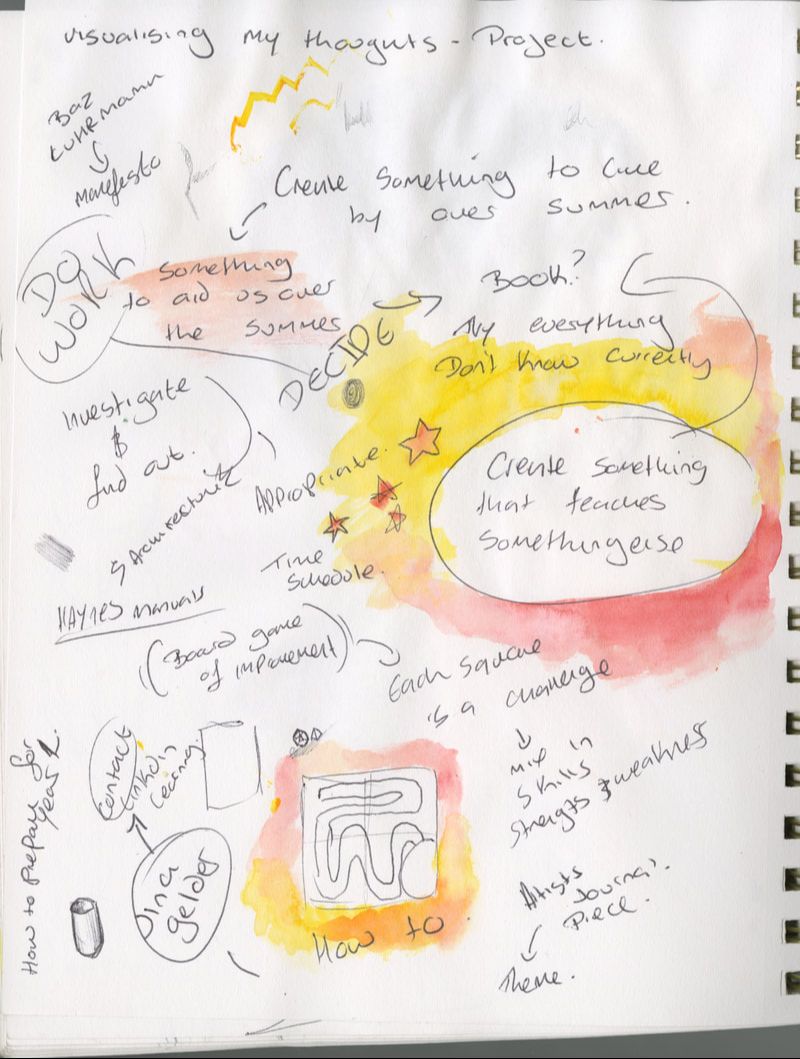 visualising my thoughts - Project.
Baz
Luhrmann
Manifesto
Create something to live
by over summer.
DO
WORK
Something
to aid us over
the summer
DECIDE
Book?
everything
Don't know currently
Investigate
&
find out.
Appropriate.
Create something
that teaches
something else
Time
Schedule.
HAYNES manuals
(Board game
of improvement)
Each square
is a challenge
mix in
skills
strengths & weakness
How to Prepare for
Year 2.
Contact
Linkdin
Learning
Dina
gelder
How to.
Artists
Journal.
Piece.
Theme.